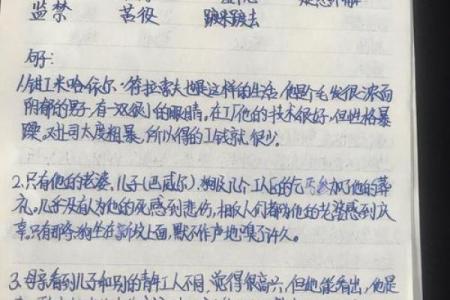 监禁 苦役 踱来踱去
句:
1.钳工米哈依尔·符拉索夫也是这样的生活,他是个毛发很浓,面
阴郁的男子,有一双很小的眼睛。在工厂他的技术很好,但性格暴
躁,对上司态度粗暴,所以得的工钱就很少。
2.只有他的老婆、儿子(巴威尔)、狗及几个工人参加了他的葬
礼。几乎没有人为他的死感到悲伤,相反人们都为他的老婆感到庆
幸。只有那条狗坐在新坟上面,默不作声地嗅了许久。
3.母亲看到儿子和别的青年工人不同,觉得很高兴,但她能看出,他是